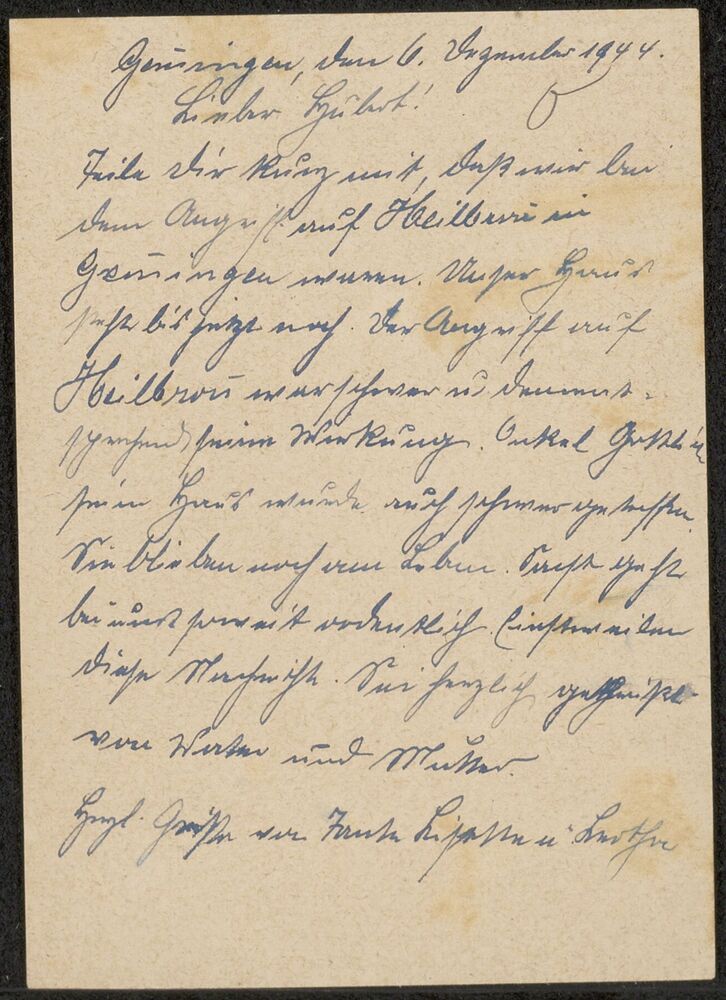 Gröningen, den 6. Dezember 1944.
Lieber Hubert!
Teile Dir kurz mit, daß wir bei
dem Angriff auf Heilbronn in
Gröningen waren. Unser Haus
steht bis jetzt noch. Der Angriff auf
Heilbronn war schwer u. dement-
sprechend seine Wirkung. Onkel Gottlieb
sein Haus wurde auch schwer getroffen.
Sie blieben noch am Leben. Sonst geht
bei uns soweit ordentlich. Einstweilen
diese Nachricht. Sei herzlich gegrüßt
von Vater und Mutter.
Herzl. Grüße von Tante Lisette u.